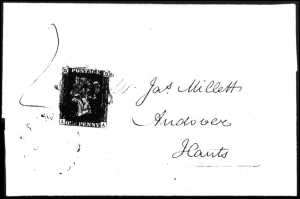 POSTAGE
ONE PENNY
Jas Millett
Andover
Hants